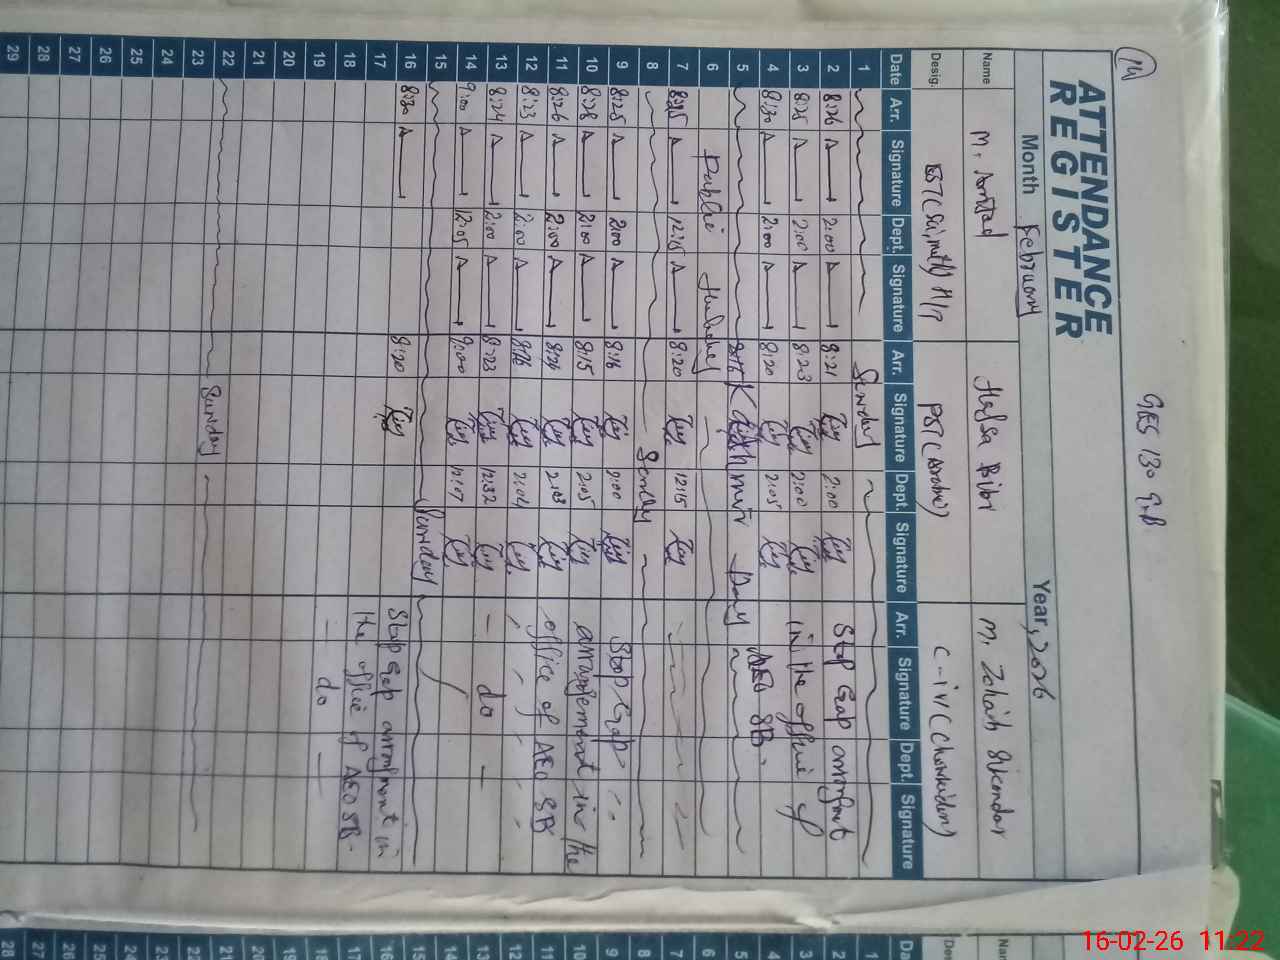 14
GES 130 G.B
ATTENDANCE
REGISTER
Month February Year, 2026
Name M. Amjad Hafsa Bibi M. Zohaib Sikandar
Desig. EST (Sci, math) H/T PST (Arabic) C-IV (Chowkidar)
Date Arr. Signature Dept. Signature Arr. Signature Dept. Signature Arr. Signature Dept. Signature
1 Sunday
2 8:26 2:00 8:21 2:00 Stop Gap arrangment
3 8:25 2:00 8:23 2:00 in the office of
4 8:30 2:00 8:20 2:05 AEO SB.
5 Kashmir Day
6 Public Holiday
7 12:15 8:20 12:15
8 Sunday
9 8:25 2:00 8:16 2:00 Stop Gap
10 8:28 2:00 8:15 2:05 arrangement in the
11 8:26 2:00 8:24 2:03 office of AEO SB
12 8:23 2:00 2:04
13 8:24 2:00 8:23 12:32 - do -
14 9:00 12:05 9:00 12:07
15 Sunday
16 8:30 8:20 Stop Gap arrangment in
17 the office of AEO SB.
18 - do -
19
20
21
22 Sunday
23
24
25
26
27
28
29
Date
1
2
3
4
5
6
7
8
9
10
11
12
13
14
15
16
17
18
19
20
21
22
23
24
25
26
27
28
16-02-26 11:22